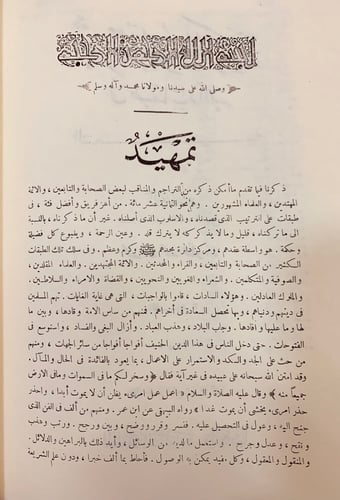 بسم الله الرحمن الرحيم
وصلى الله على سيدنا ومولانا محمد وآله وسلم
تمهيد
ذكرنا فيما تقدم ما أمكن ذكره من التراجم والمناقب لبعض الصحابة والتابعين ، والائمة
المهتدين ، والعلماء المشهورين . وهم نحو الثمانية عشر مائة . من أعز فريق وأفضل فئة ، في
طبقات على الترتيب الذى قصدناه ، والاسلوب الذى أصلناه . غير أن ما ذكرناه ، بالنسبة
الى ما تركناه ، قليل وما لا يدرك كله لا يترك قله . وعين الرحمة ، وينبوع كل فضيلة
وحكمة . هو واسطة عقدهم ، ومركز دارة مجدهم ﷺ وكرم وعظم . وفى سلك تلك الطبقات
الكثير من الصحابة والتابعين ، والقراء والمحدثين . والائمة المجتهدين . والعلماء المقلدين ،
والصوفية والمتكلمين . والشعراء واللغويين والنحويين ، والقضاة والامراء والسلاطين .
والملوك العادلين . وهؤلاء السادات . قاموا بالواجبات ، التى هى غاية الغايات . تهم المسلمين
فى دينهم ودنياهم ، وبها تحصل السعادة فى أخراهم . فمنهم من ساس الامة وقادها ، وبين ما
لها وما عليها وأفادها . وجاب البلاد ، وهذب العباد . وأزال البغى والفساد ، واستوسع فى
الفتوحات . حتى دخل الناس فى هذا الدين الحنيف أفواجا أفواجا من سائر الجهات ، ومنهم
من حث على الجد والكد والاستمرار على الاعمال ، بما يعود بالفائدة فى الحال والمآل .
وقد امتن الله سبحانه على عبيده فى غير آية فقال ﴿ وسخر لكم ما فى السموات وما فى الارض
جميعاً منه ﴾ وقال عليه الصلاة والسلام « اعمل عمل امرىء يظن أن لا يموت أبدا ، واحذر
حذر امرىء يخشى أن يموت غدا » رواه البيهقى عن ابن عمر . ومنهم من ألف فى الفن الذى
جنح اليه ، وعول فى التحصيل عليه . ففسر وقرر ووضح ، وبين ورجح . ورتب وهذب
ونقح ، وعدل وجرح . واستعمل ما لديه من الوسائل ، وأيد ذلك بالبراهين والدلائل .
والمنقول والمعقول ، وكل مفيد يمكن به الوصول . فأحاط بما ألف خبرا ، ودون علم الشريعة